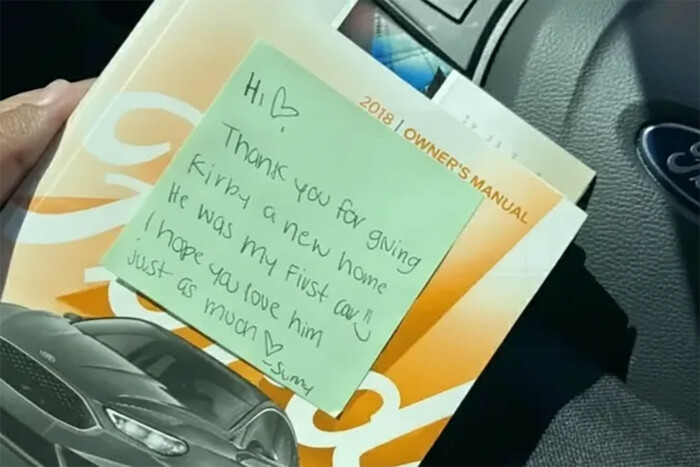 2018 | OWNER'S MANUAL
Hi ♡
Thank you for giving
Kirby a new home
He was my first car!!
I hope you love him
just as much ♡
-Sunny